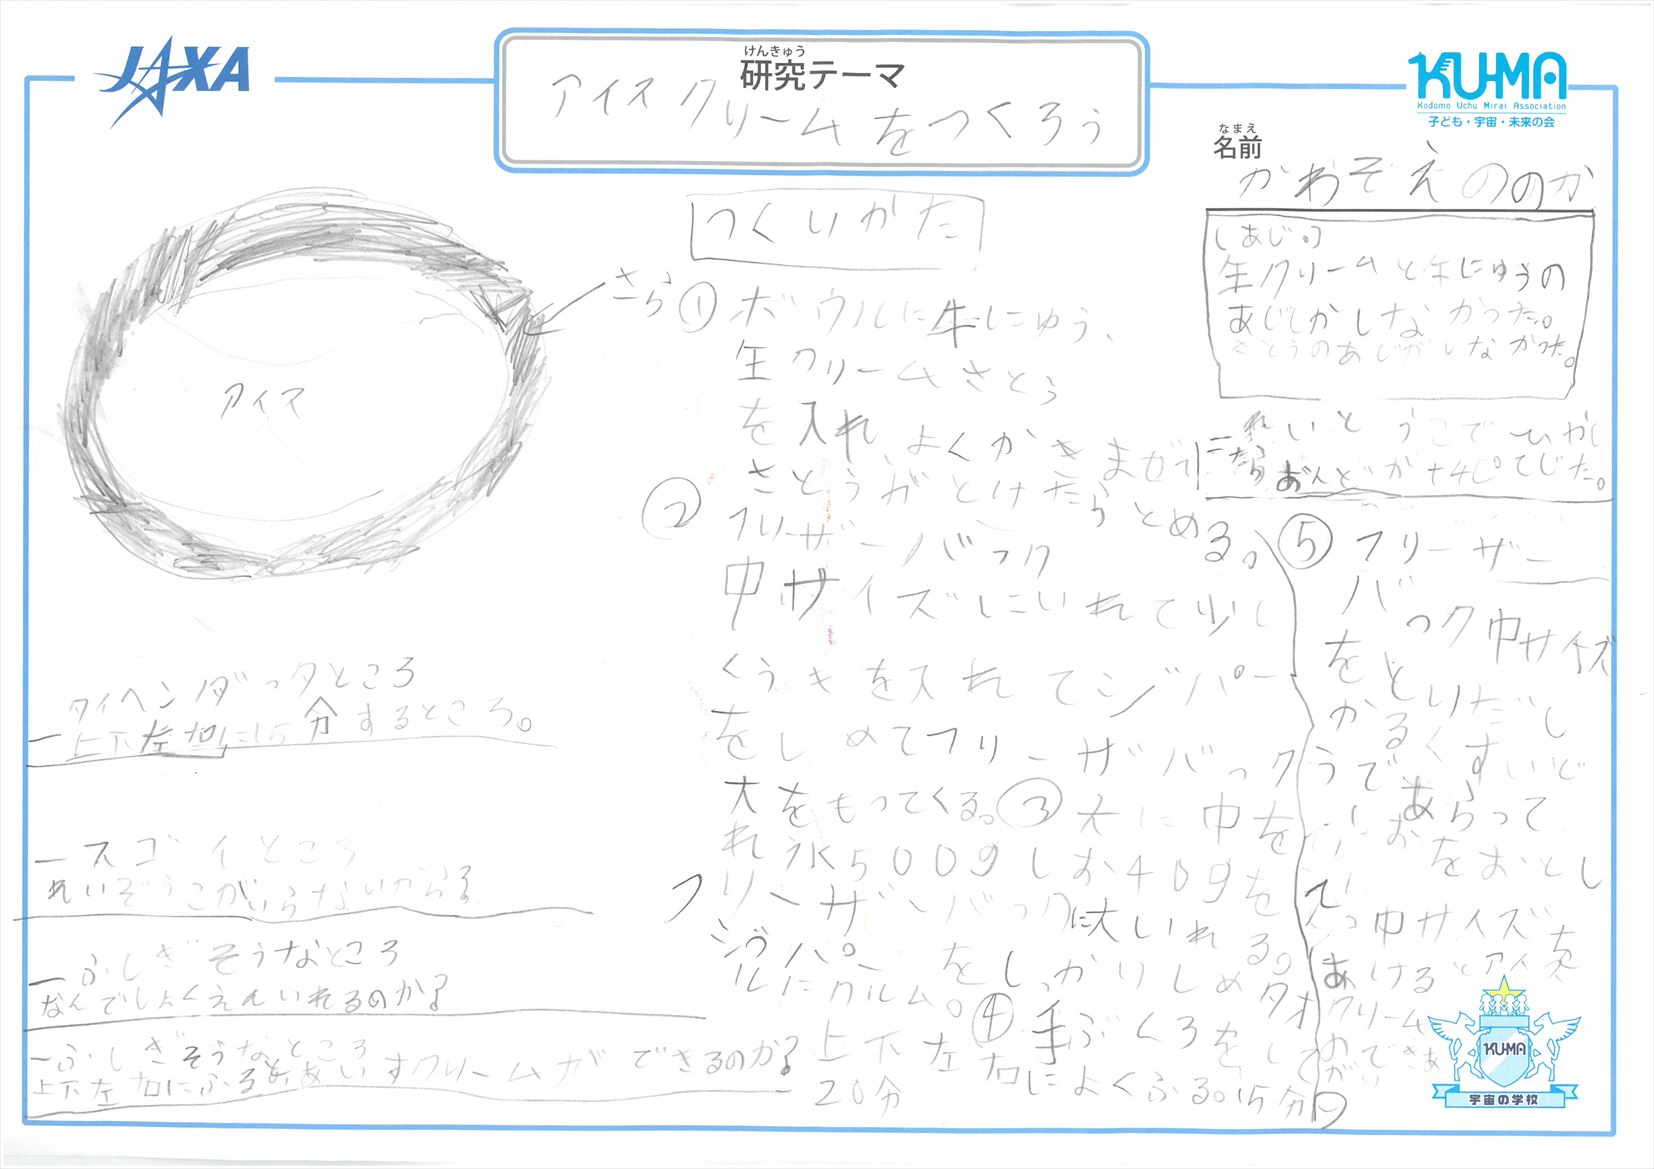 JAXA
けんきゅう
研究テーマ
アイスクリームをつくろう
KU-MA
Kodomo Uchu Mirai Association
子ども・宇宙・未来の会
なまえ
名前
かわぞえののか
さら
アイス
つくりかた
①ボウルに牛にゅう、
生クリームさとう
を入れ、よくかきまぜて
さとうがとけたらとめる。
②フリーザーバック
中サイズにいれて少し
くうきを入れてジパー
をしめてフリーザバック
大をもってくる。③大に中を
れ氷500gしお40gを
フリーザーバックに大いれる。
ジッパーをしっかりしめ
タオルにクルム。④手ぶくろをして
上下左右によくふる。15分
20分
しあじ。
生クリームと牛にゅうの
あじしかしなかった。
さとうのあじがしなかった。
れいとうこでひやし
たらおんどが+4℃でした。
⑤フリーザー
バック中サイズ
をとりだし
かるくすいど
うであらって
しおをおとし
中サイズを
あけるとアイス
クリーム
ータイヘンダッタところ
上下左右に15分するところ。
ースゴイところ
れいぞうこがいらないから?
ーふしぎそうなところ
なんでしょくえんいれるのか?
ーふしぎそうなところ
上下左右にふるとあいすクリームができるのか?
KUMA
宇宙の学校